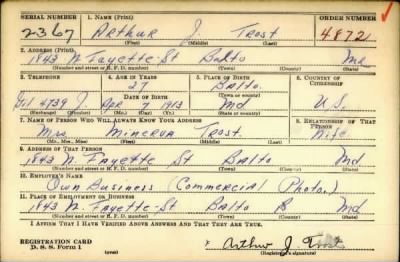 SERIAL NUMBER 1. NAME (Print) ORDER NUMBER
2367 Arthur J. Trost 4872
(First) (Middle) (Last)
2. ADDRESS (Print)
1843 N. Fayette-St Balto Md
(Number and street or R. F. D. number) (Town) (County) (State)
3. TELEPHONE 4. AGE IN YEARS 5. PLACE OF BIRTH 6. COUNTRY OF CITIZENSHIP
27 Balto.
DATE OF BIRTH (Town or county)
4739 J. Apr 7 1913 Md U.S.
(Exchange) (Number) (Mo.) (Day) (Yr.) (State or country)
7. NAME OF PERSON WHO WILL ALWAYS KNOW YOUR ADDRESS 8. RELATIONSHIP OF THAT PERSON
Mrs. Minerva Trost. Wife
(Mr., Mrs., Miss) (First) (Middle) (Last)
9. ADDRESS OF THAT PERSON
1843 N. Fayette-St Balto Md
(Number and street or R. F. D. number) (Town) (County) (State)
10. EMPLOYER'S NAME
Own Business (Commercial Photo.)
11. PLACE OF EMPLOYMENT OR BUSINESS
1843 N. Fayette St Balto Md
(Number and street or R. F. D. number) (Town) (County) (State)
I AFFIRM THAT I HAVE VERIFIED ABOVE ANSWERS AND THAT THEY ARE TRUE.
REGISTRATION CARD
D. S. S. Form 1 (over) Arthur J. Trost
(Registrant's signature)